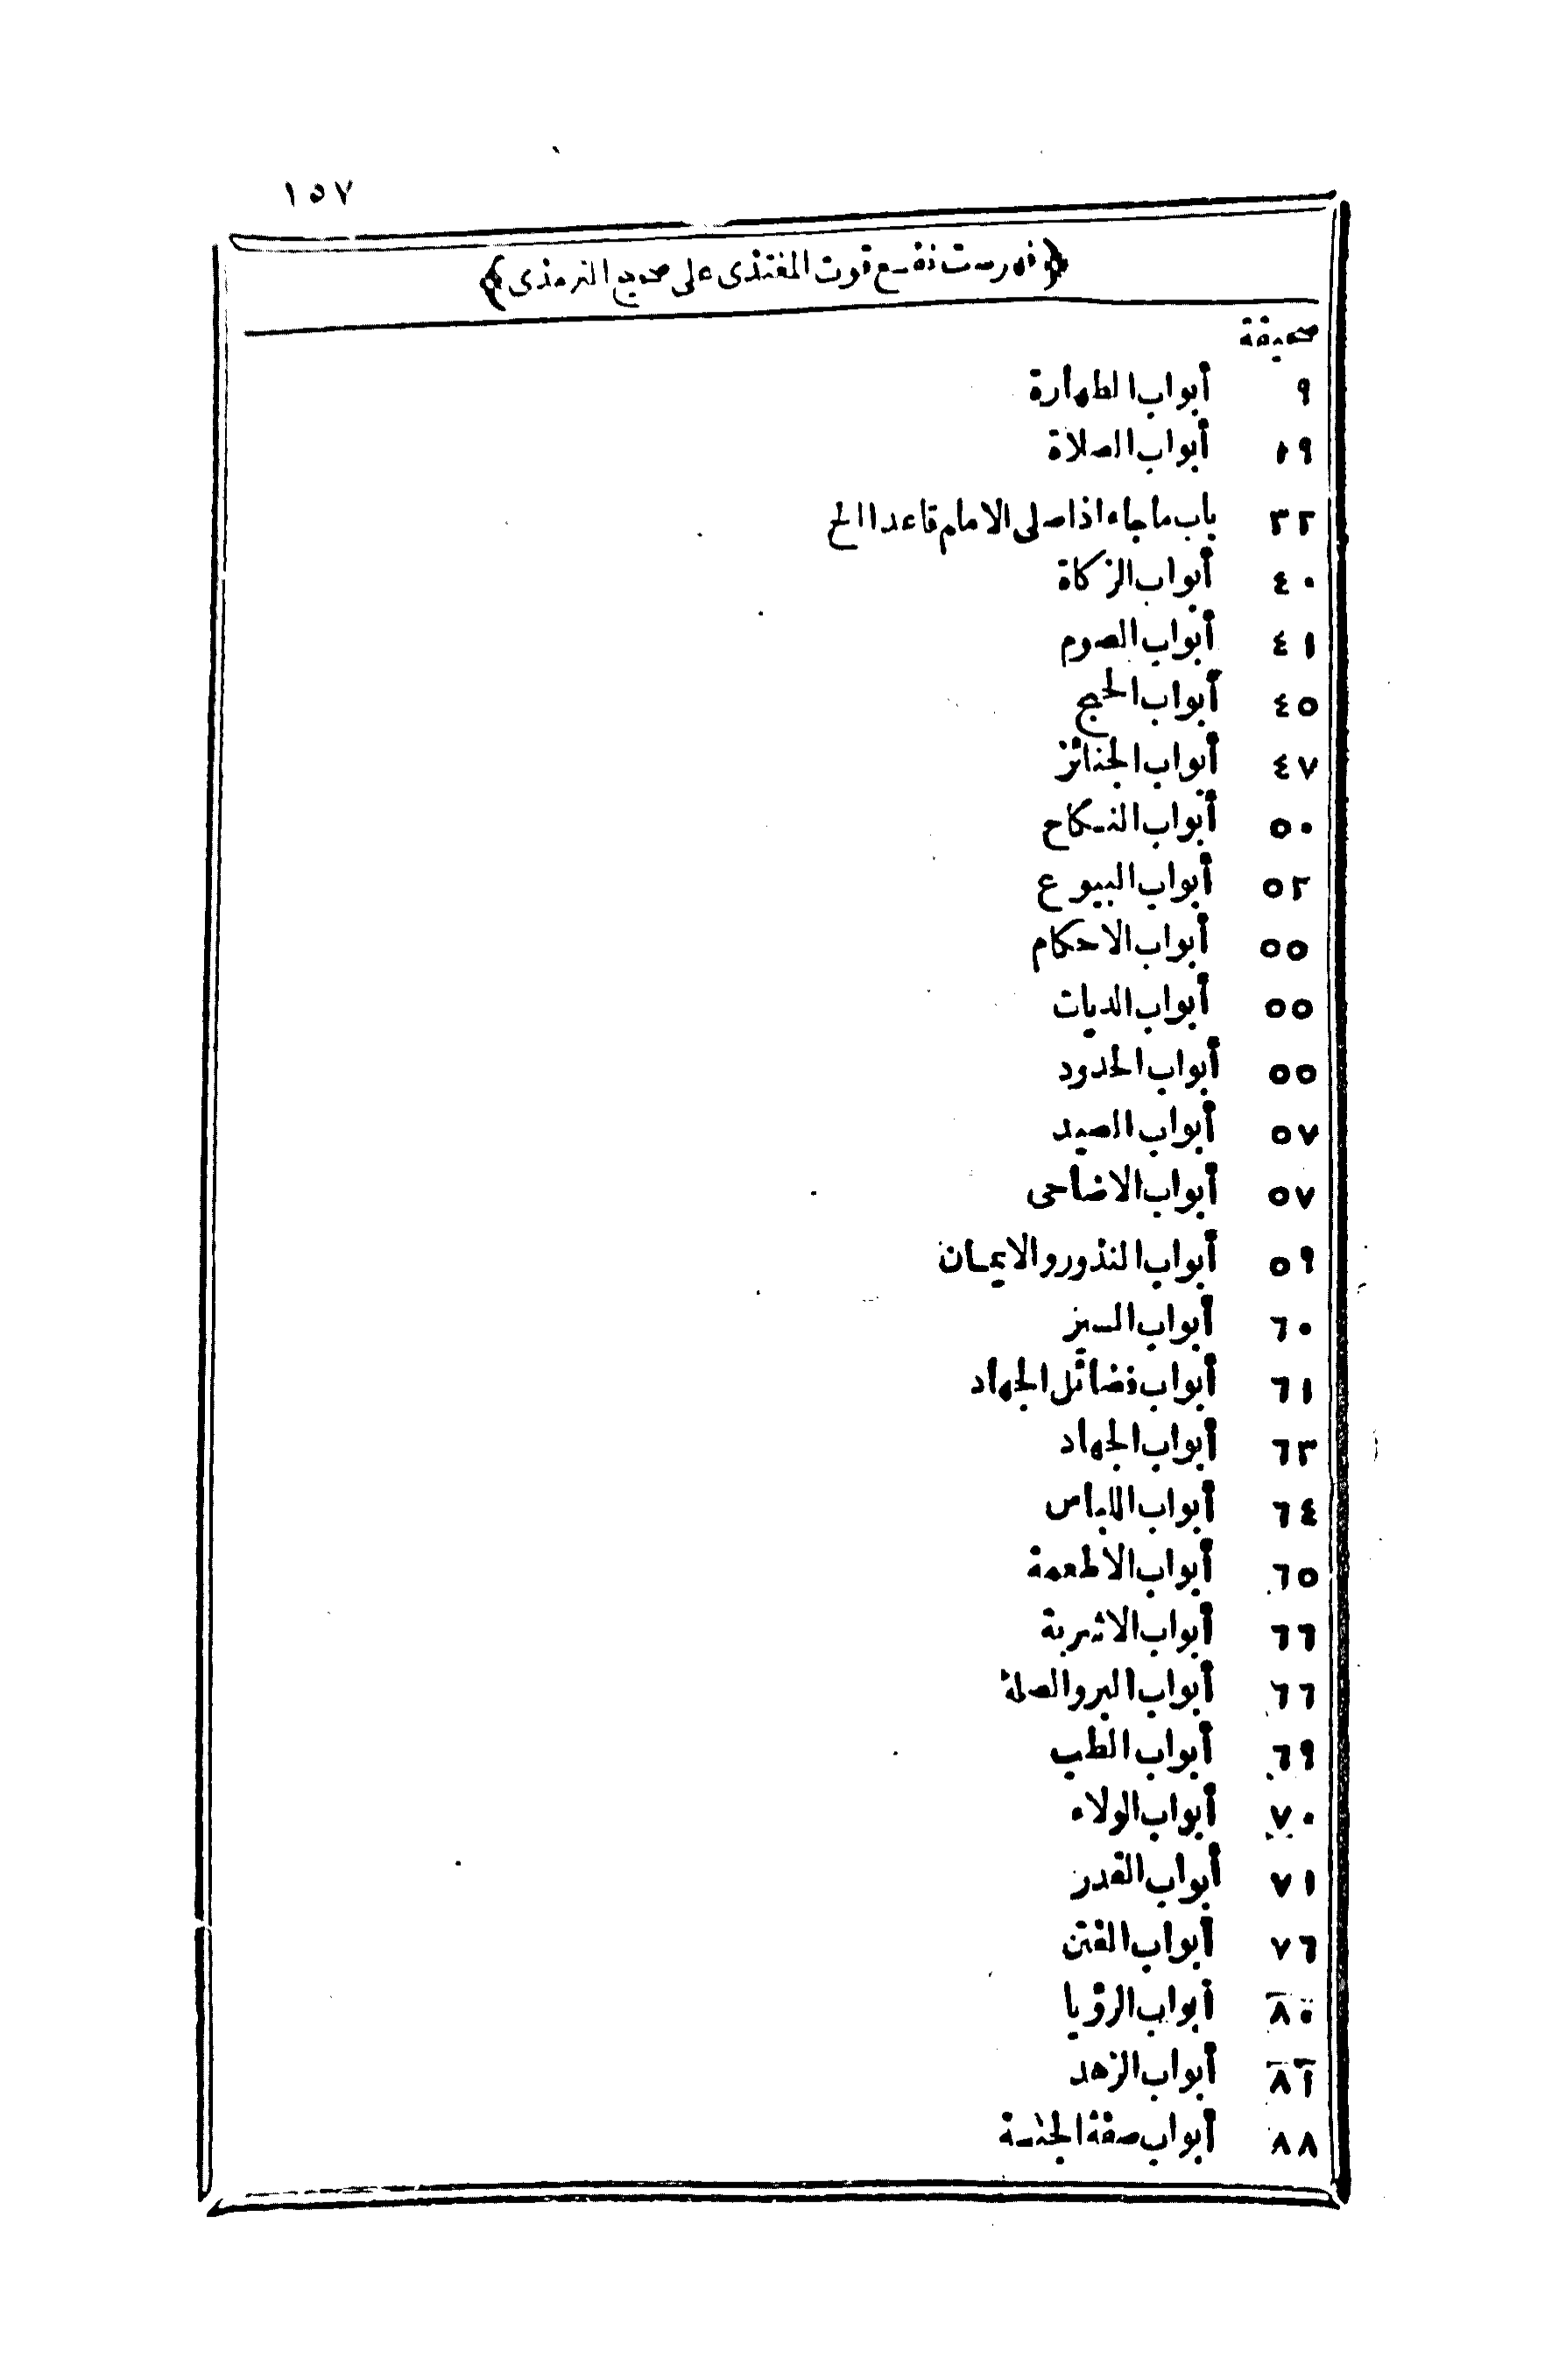 ١٥٧
﴿فهرست نفع قوت المغتذى على صحيح الترمذى﴾
صحيفة
٩ أبواب الطهارة
١٩ أبواب الصلاة
٣٢ باب ما جاء اذا صلى الامام قاعدا الخ
٤٠ أبواب الزكاة
٤١ أبواب الصوم
٤٥ أبواب الحج
٤٧ أبواب الجنائز
٥٠ أبواب النكاح
٥٢ أبواب البيوع
٥٥ أبواب الاحكام
٥٥ أبواب الديات
٥٥ أبواب الحدود
٥٧ أبواب الصيد
٥٧ أبواب الاضاحى
٥٩ أبواب النذور والايمان
٦٠ أبواب السير
٦١ أبواب فضائل الجهاد
٦٣ أبواب الجهاد
٦٤ أبواب اللباس
٦٥ أبواب الاطعمة
٦٦ أبواب الاشربة
٦٦ أبواب البر والصلة
٦٩ أبواب الطب
٧٠ أبواب الولاء
٧١ أبواب القدر
٧٦ أبواب الفتن
٨٠ أبواب الرؤيا
٨١ أبواب الزهد
٨٨ أبواب صفة الجنة